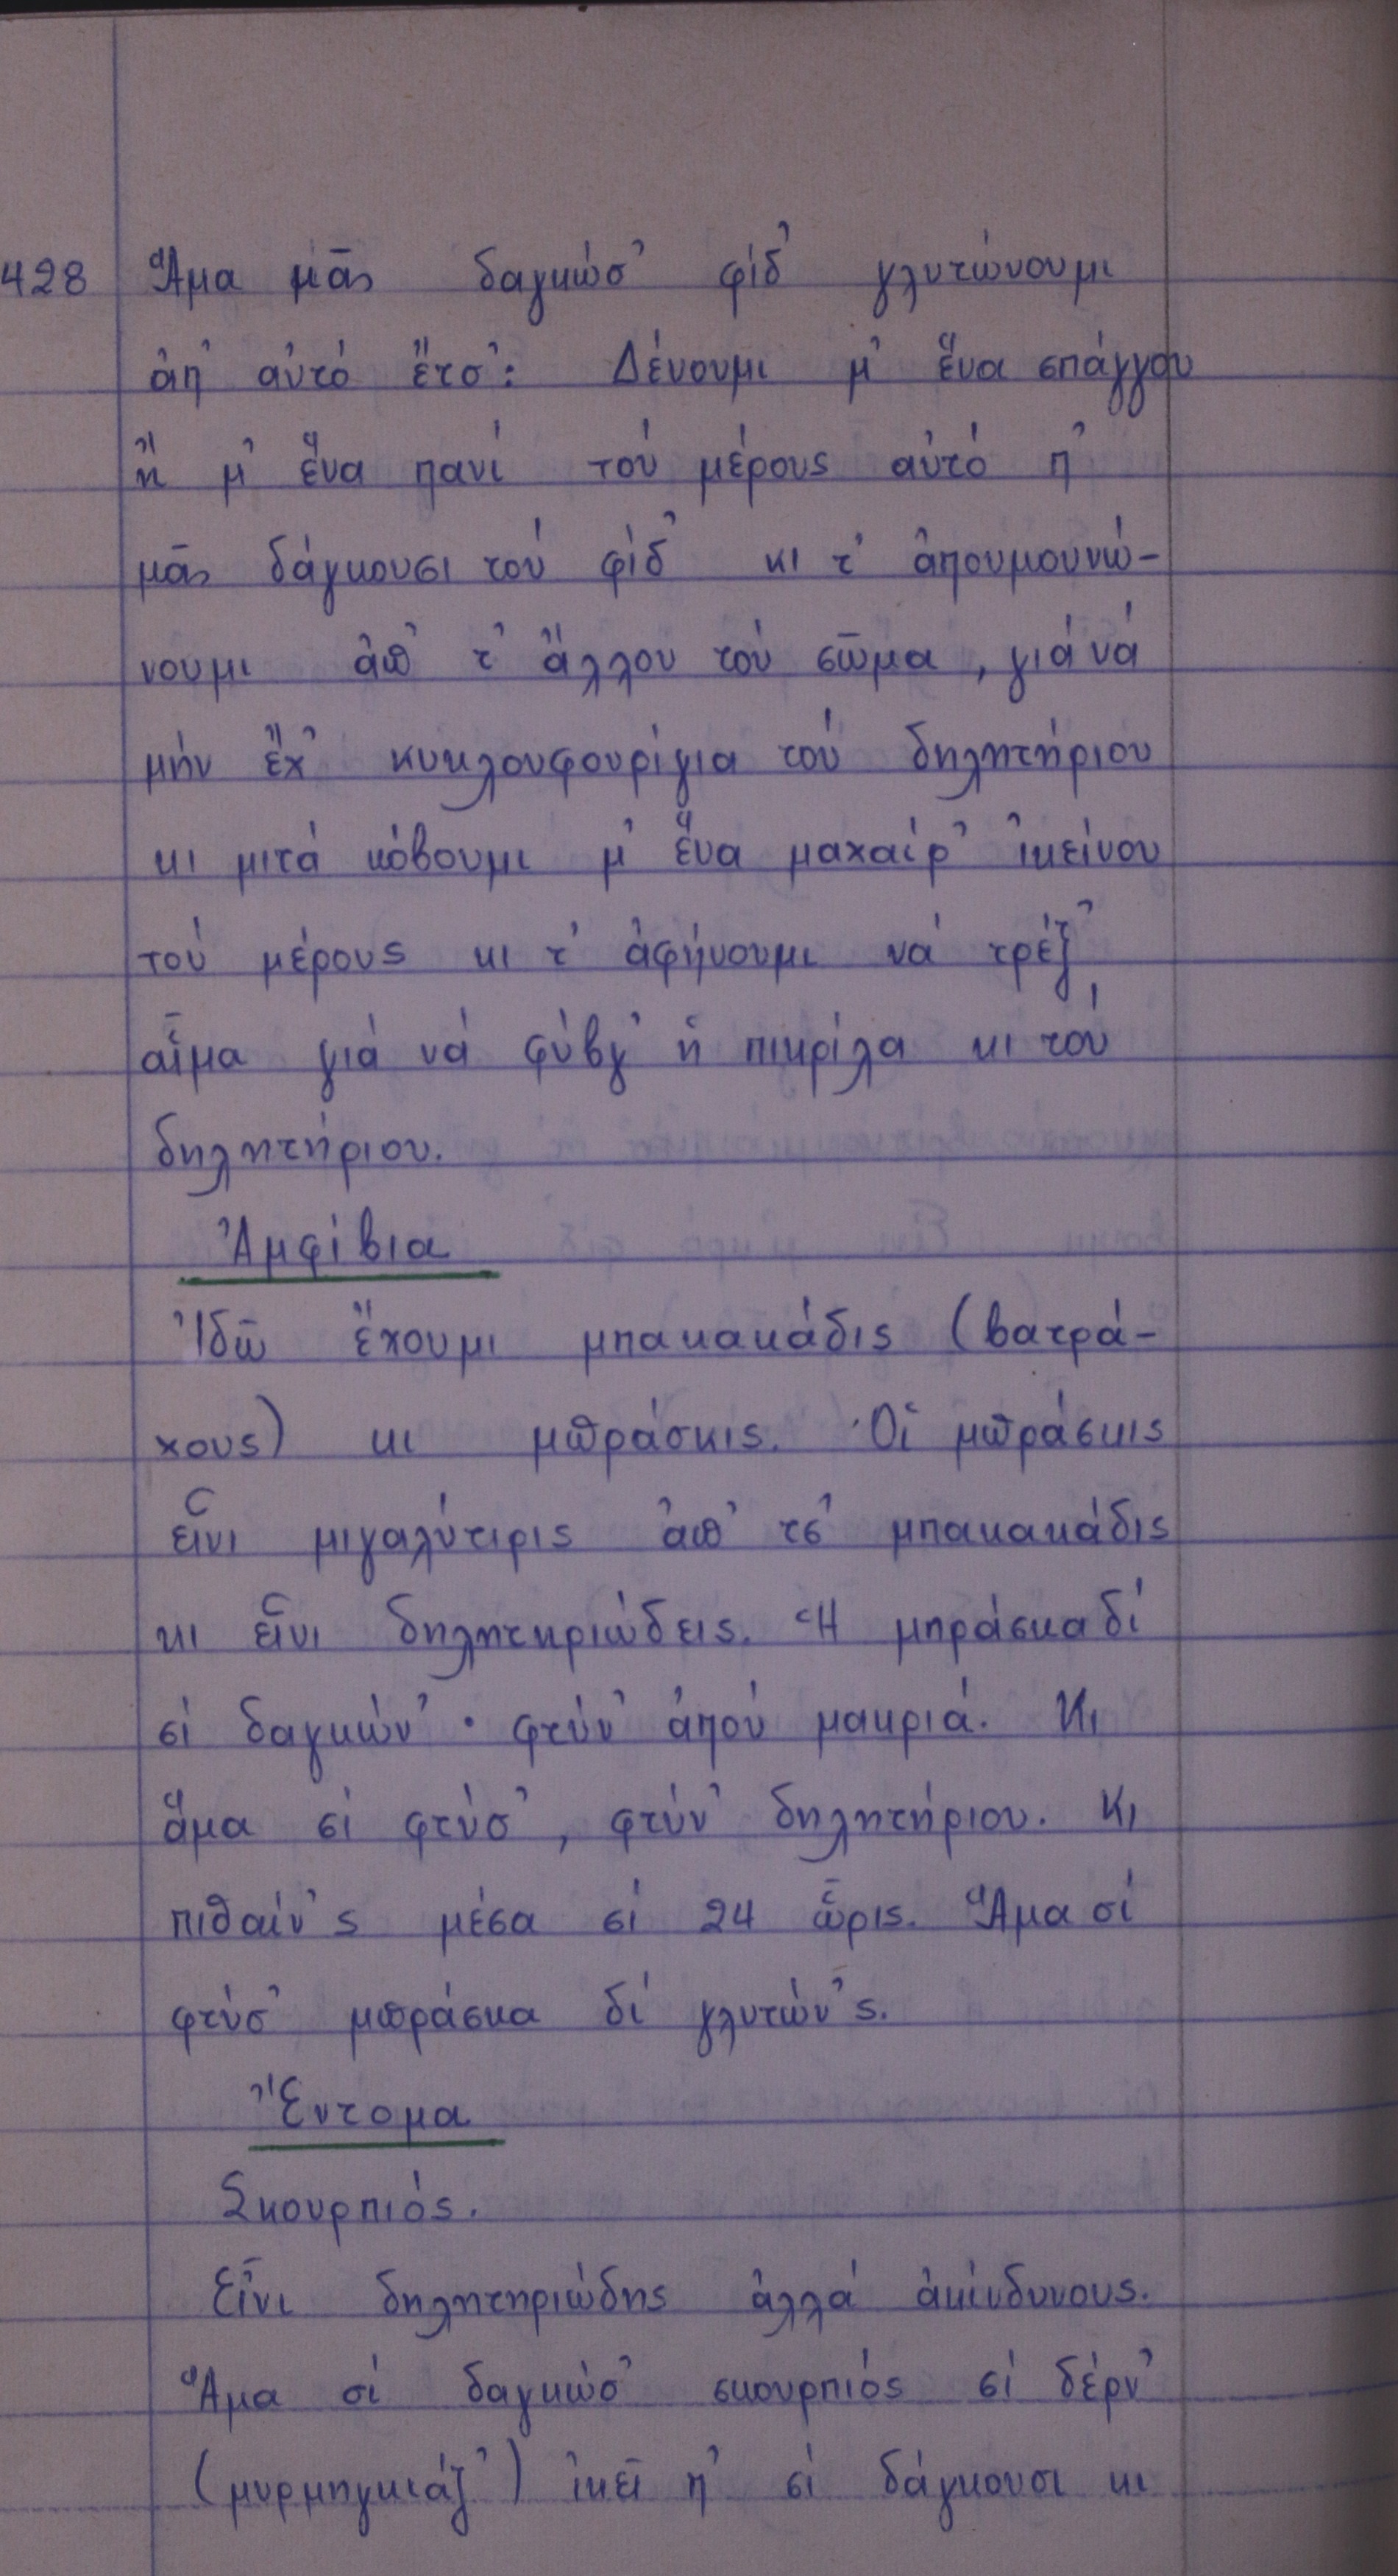 428 Ἅμα μᾶς δαγκώσ' φίδ' γλυτώνουμι
ἀπ' αὐτό ἔτσ': Δένουμι μ' ἕνα σπάγγου
ἤ μ' ἕνα πανί τού μέρους αὐτό π'
μᾶς δάγκουσι τού φίδ' κι τ' ἀπουμουνώ-
νουμι ἀπ' τ' ἄλλου τού σῶμα, γιά νά
μήν ἔχ' κυκλουφουρίγια τού δηλητήριου
κι μιτά κόβουμι μ' ἕνα μαχαίρ' ἰκείνου
τού μέρους κι τ' ἀφήνουμι νά τρέξ'
αἷμα γιά νά φύβγ' ἡ πικρίλα κι τού
δηλητήριου.
Ἀμφίβια
Ἰδῶ ἔχουμι μπακακάδις (βατρά-
χους) κι μπράσκις. Οἱ μπράσκις
εἶνι μιγαλύτιρις ἀπ' τσ' μπακακάδις
κι εἶνι δηλητηριώδεις. Ἡ μπράσκα δί
σί δαγκών' · φτύν' ἀπού μακριά. Κι
ἅμα σί φτύσ', φτύν' δηλητήριου. Κι
πιθαίν'ς μέσα σί 24 ὧρις. Ἅμα σί
φτύσ' μπράσκα δί γλυτών'ς.
Ἔντομα
Σκουρπιός.
Εἶνι δηλητηριώδης ἀλλά ἀκίνδυνους.
Ἅμα σί δαγκώσ' σκουρπιός σί δέρν'
(μυρμηγκιάζ') ἰκεῖ π' σί δάγκουσι κι